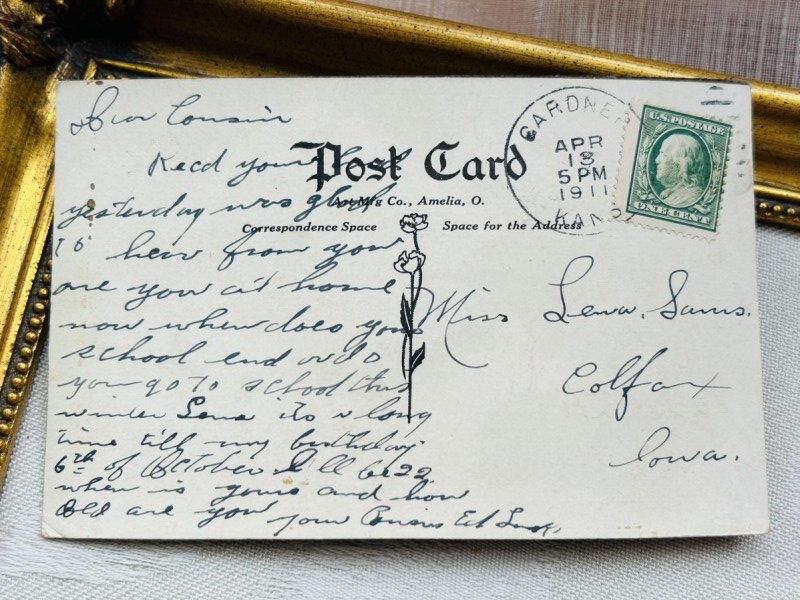 Dear Cousin
Recd your
yesterday was glad
to hear from you
are you at home
now when does your
school end
you go to school this
winter Lena its a long
time till my birthday
6th of October Ill be 22
when is yours and how
old are you
your Cousin Ed
Post Card
Art Mfg Co., Amelia, O.
Correspondence Space
Space for the Address
GARDNER
APR
13
5 PM
1911
KANS
U.S. POSTAGE
ONE CENT
Miss Lena. Sams.
Colfax
Iowa.